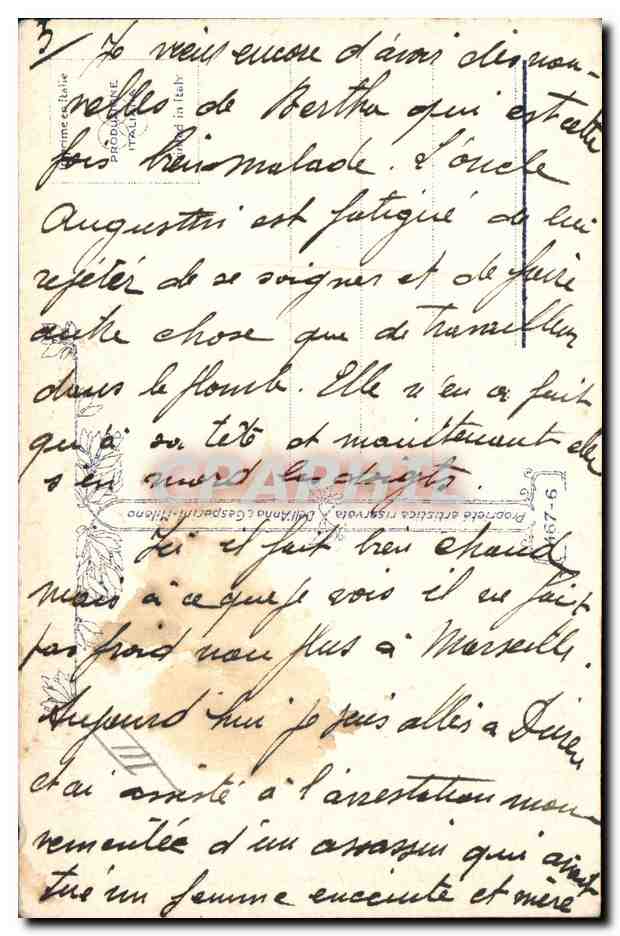 3/ Je viens encore d'avoir des nou-
velles de Bertha qui est cette
fois bien malade. L'oncle
Augustin est fatigué de lui
répéter de se soigner et de faire
autre chose que de travailler
dans le plomb. Elle n'en a fait
qu'à sa tête et maintenant elle
s'en mord les doigts.
Ici il fait bien chaud
mais à ce que je vois il ne fait
pas froid non plus à Marseille.
Aujourd'hui je suis allé à
et ai assisté à l'arrestation mou-
vementée d'un assassin qui avait
tué un femme enceinte et mère
III
Imprimé en Italie
PRODUZIONE
ITALIANA
Printed in Italy
CPARAMA
Proprietà artistica riservata
Dell'Anna & Gasparini-Milano
467-6